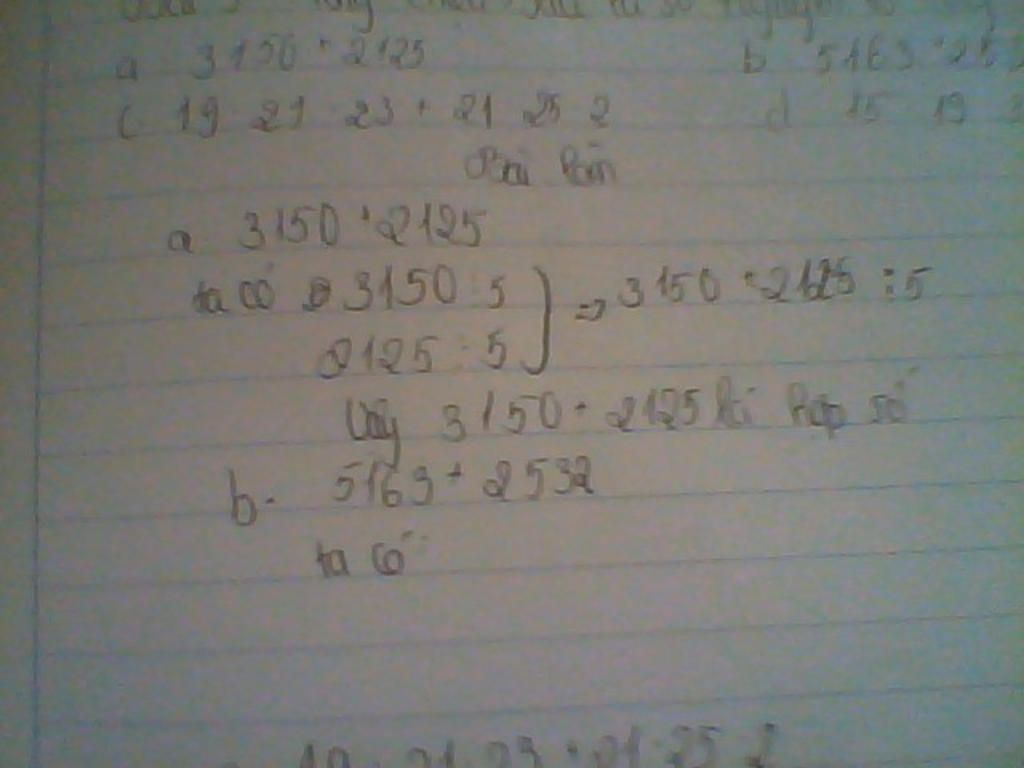 a 3150 + 2125 b 5163 + 253
c. 19 21 23 + 21 25 2 d 15 19 3
Bài làm
a 3150 + 2125
ta có 3150 : 5
2125 : 5 } => 3150 + 2125 : 5
Vậy 3150 + 2125 là hợp số
b. 5163 + 2532
ta có
19 . 21 . 23 + 21 . 25 2